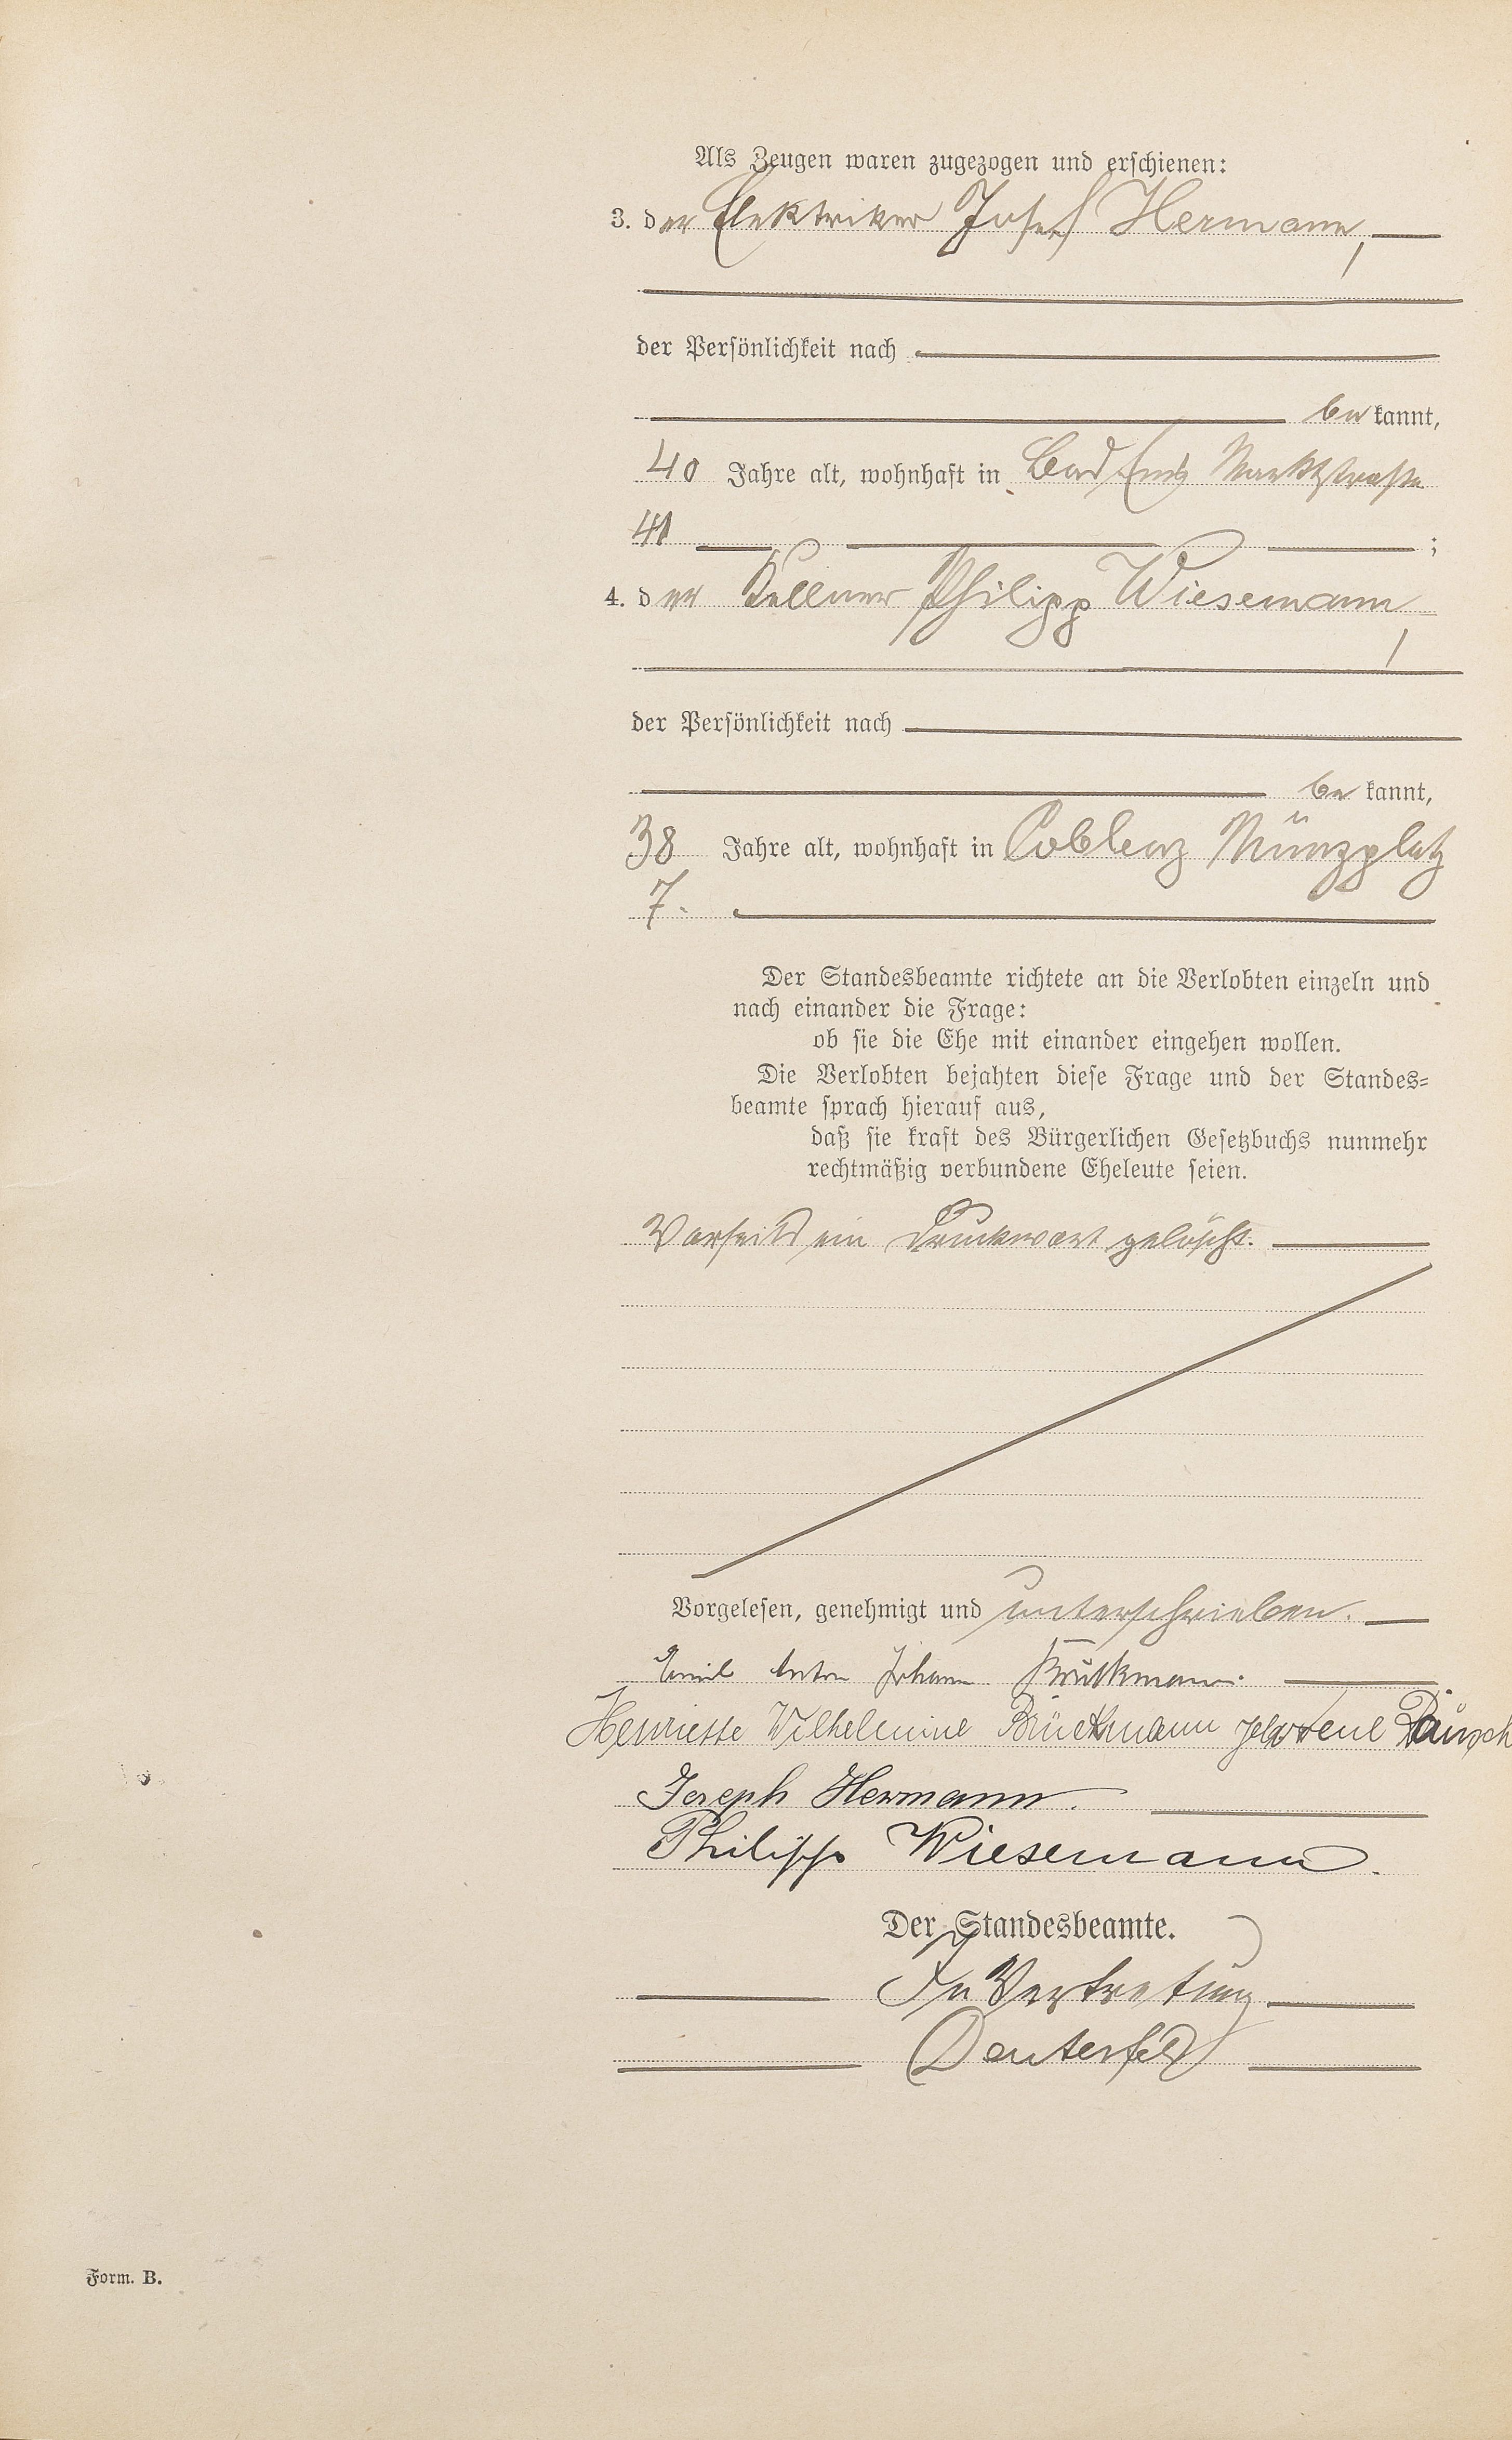 Als Zeugen waren zugezogen und erschienen:
3. der Elektriker Josef Hermann,
der Persönlichkeit nach
be kannt,
40 Jahre alt, wohnhaft in Bad Ems Marktstraße
41 ;
4. der Kellner Philipp Wiesemann,
der Persönlichkeit nach
be kannt,
38 Jahre alt, wohnhaft in Coblenz Münzplatz
7.
Der Standesbeamte richtete an die Verlobten einzeln und
nach einander die Frage:
ob sie die Ehe mit einander eingehen wollen.
Die Verlobten bejahten diese Frage und der Standes=
beamte sprach hierauf aus,
daß sie kraft des Bürgerlichen Gesetzbuchs nunmehr
rechtmäßig verbundene Eheleute seien.
Vorseits ein Druckwort gelöscht.
Vorgelesen, genehmigt und unterschrieben.
Emil Anton Johann Brückmann.
Henriette Wilhelmine Brückmann geborene
Joseph Hermann.
Philipp Wiesemann.
Der Standesbeamte.
In Vertretung
Form. B.